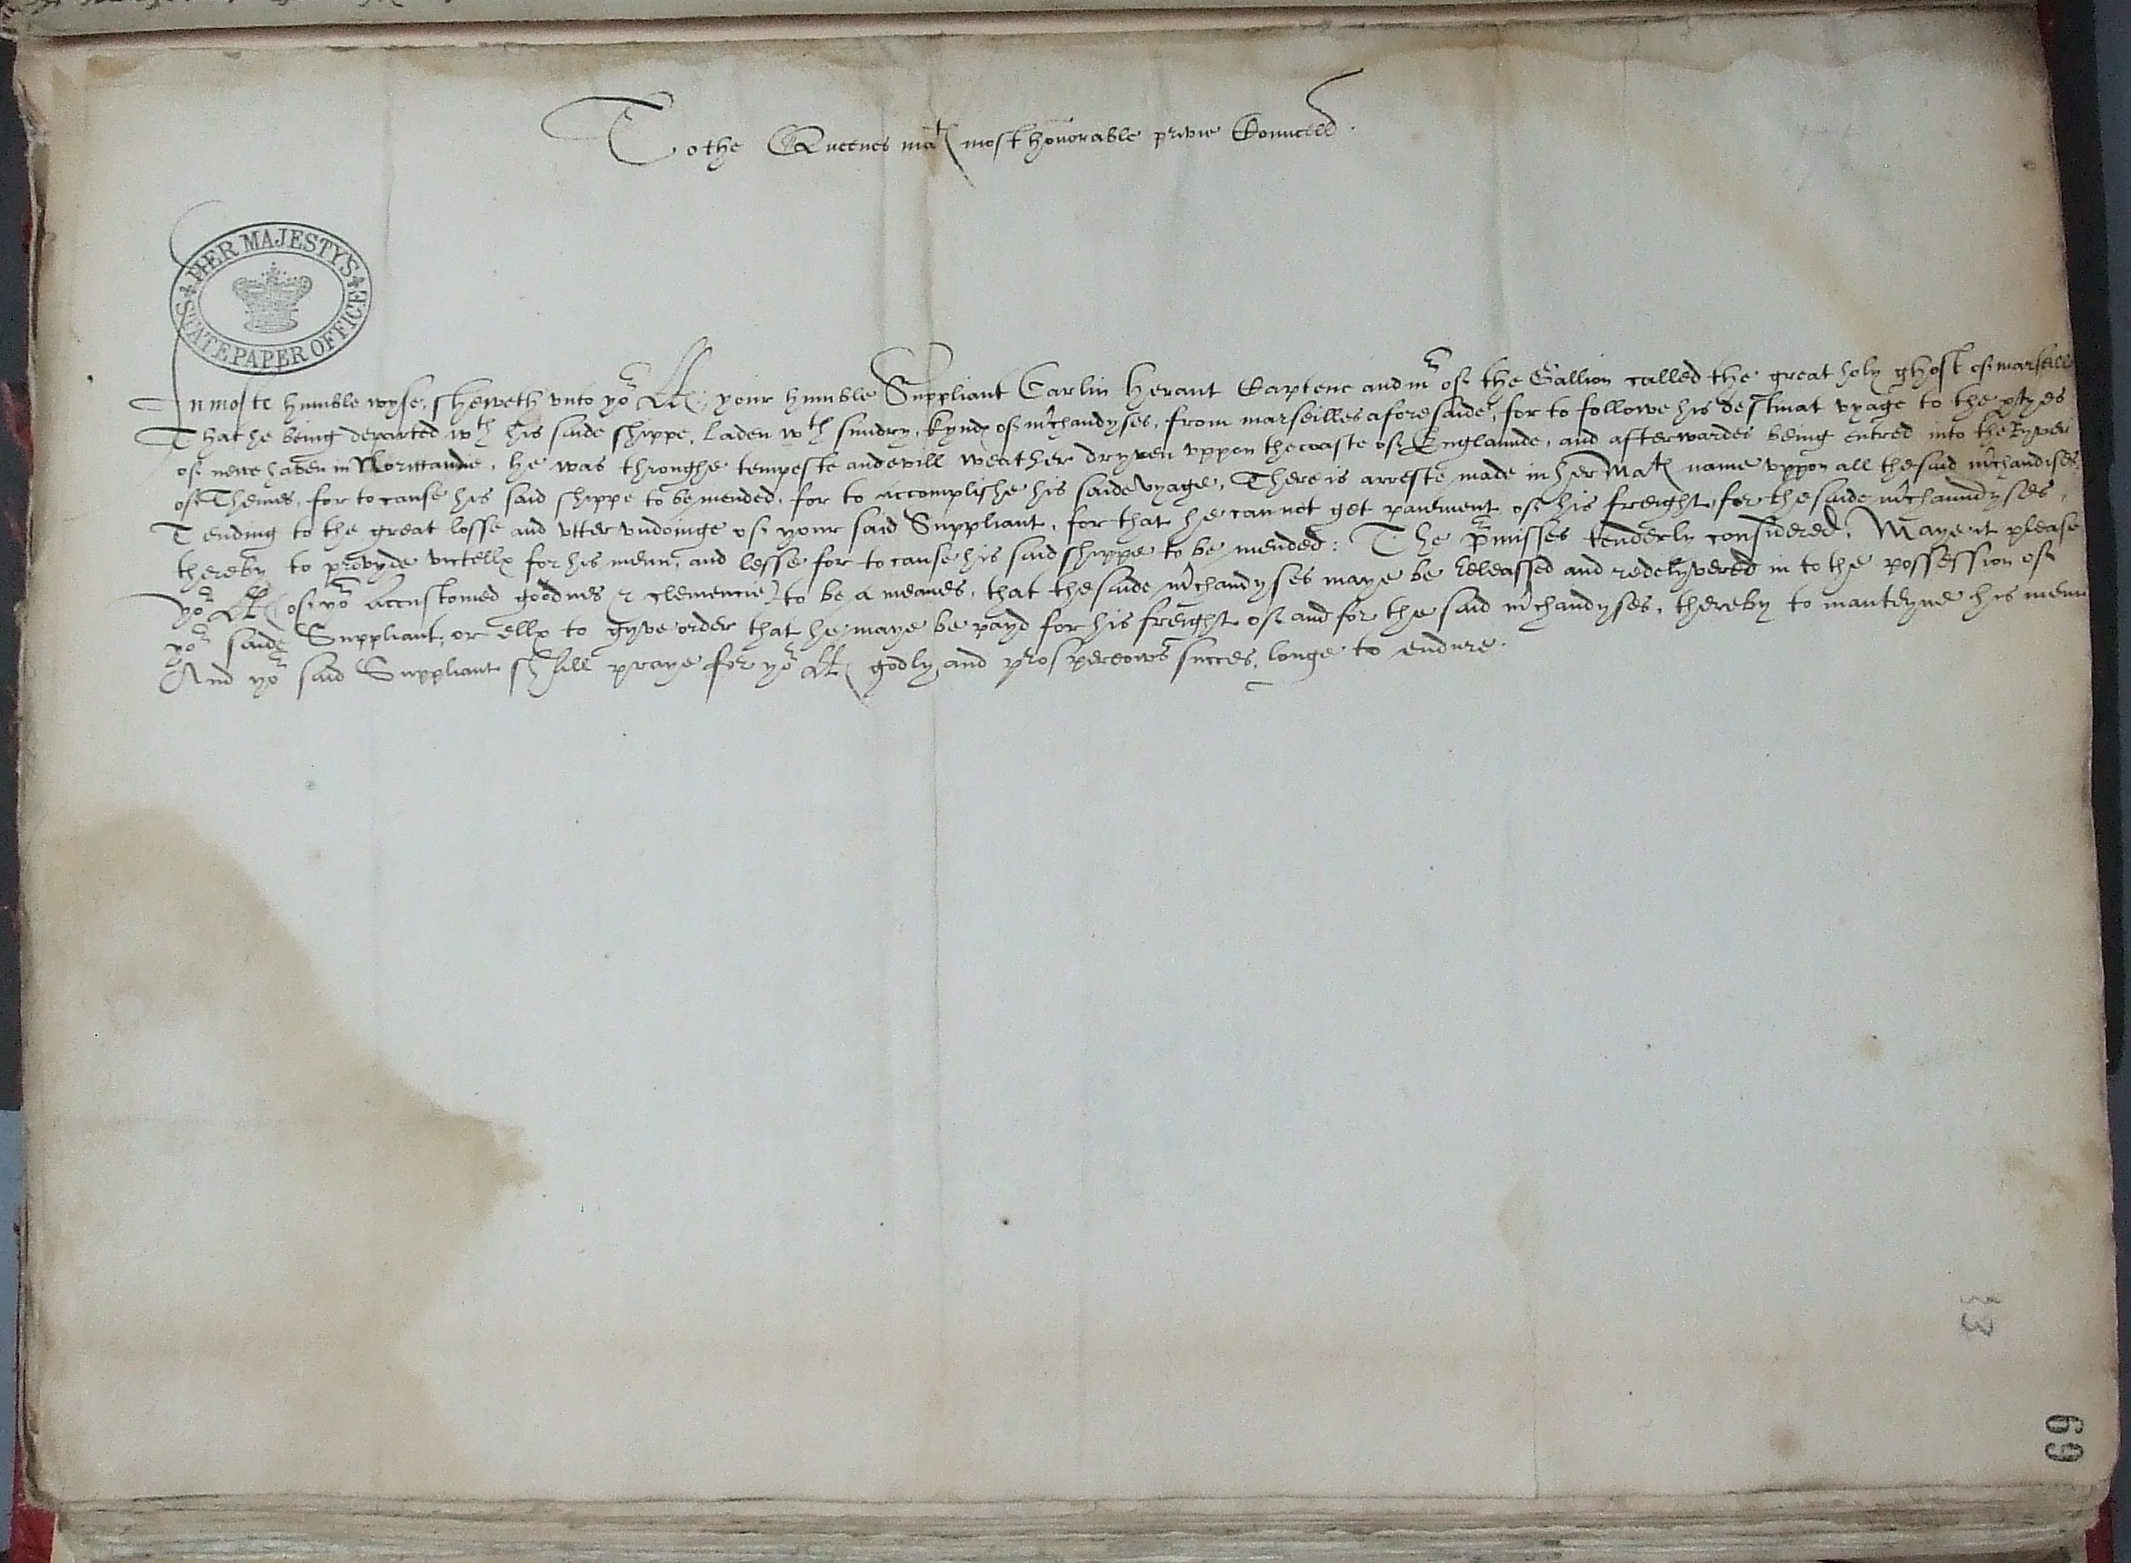 To the Queenes mat most honorable privie Councell.
HER MAJESTY'S
STATE PAPER OFFICE
In moste humble wyse, sheweth vnto yor LL: your humble Suppliant Carlin Herant Captene and mr of the Gallion called the great holy ghost of marseill
That he being departed wth his saide shippe, Laden wth sundry kyndes of mchandyses, from marseilles aforesaide, for to followe his destinat vyage to the ptyes
of newe haven in Normandie, he was throughe tempeste and evill weather dryven vppon the coaste of Englannde, and afterwardes being entred into the Ryver
of Themes, for to cause his said shippe to be mended, for to accomplishe his saide vyage, There is arreste made in her Mats name vppon all the said mchandises,
Tending to the great losse and vtter vndoinge of your said Suppliant, for that he can not get paiement of his freight for the saide mchanndyses,
thereby to provyde victelles for his menn, and lesse for to cause his said shippe to be mended: The pmisses tenderly considered, Maye it please
yor LL (of yor accustomed goodnes & clemencie) to be a meanes, that the saide mchandyses maye be Releassed and redelyvered in to the possession of
yor saide Suppliant, or elles to gyve order that he maye be payd for his freight of and for the said mchandyses, thereby to manteyne his menn
And yor said Suppliant shall praye for yor LL godly and prospereows succes, longe to endure.
69